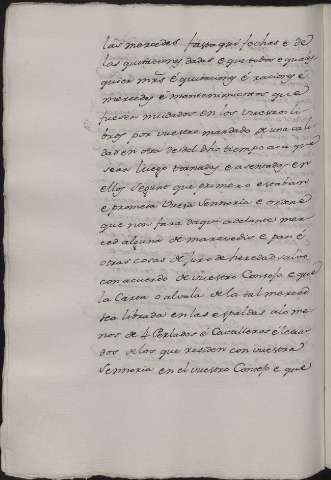 las mercedes fasta qui fechas e de
las quitaciones dadas e que todos e quales
quier mrs e quitaciones e raciones e
mercedes e mantenimientos que
fuesen mudados en los vuestros li
bros por vuestro mandado de una cali
dad en otra desdel dho tiempo acá que
sean luego tornadas e asentadas en
ellos segunt que primero estaban
e prometa Vuesa Sennoria e ordene
que non fara daqui adelante mer
ced alguna de maravedis e pan e
otras cosas de juro de heredad salvo
con acuerdo de vuestro Consejo e que
la Carta o alvala de la tal merced
sea librada en las espaldas a lo me
nos de 4 Perlados e Cavalleros e letra
dos de los que residen con vuestra
Sennoria en el vuestro Consejo e que